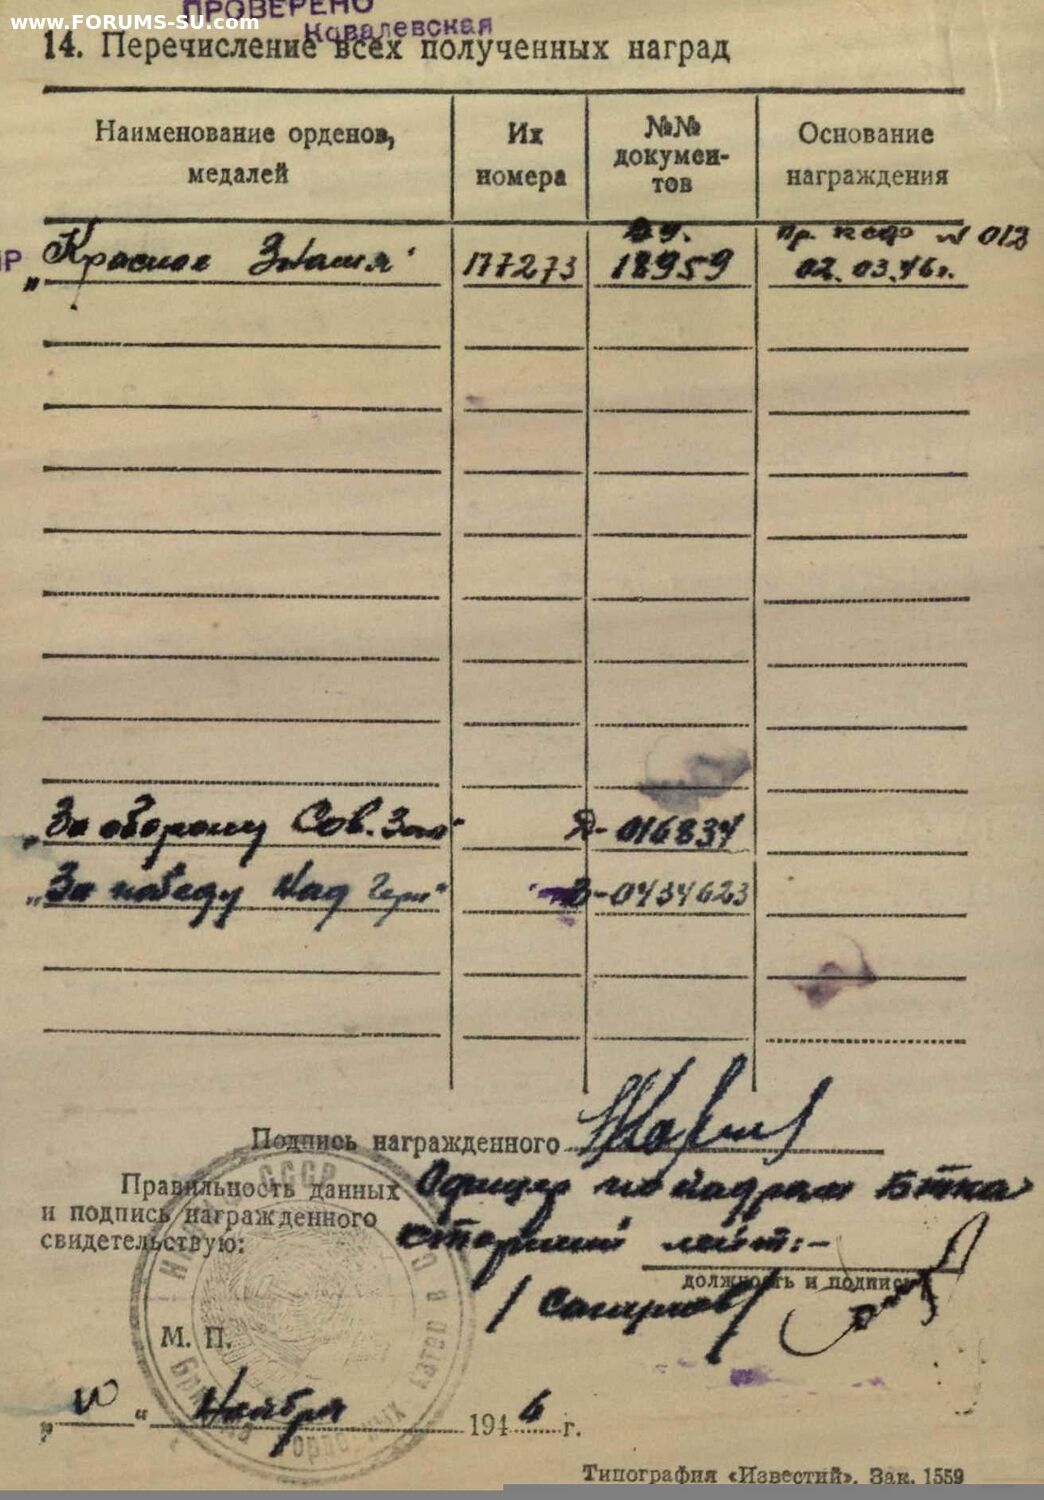 ПРОВЕРЕНО
www.FORUMS-SU.com
Ковалевская
14. Перечисление всех полученных наград
Наименование орденов, медалей
Их номера
№№ документов
Основание награждения
„Красное Знамя“ 177273 18959 Пр. КСФ № 012 02.03.46г.
„За оборону Сов. Зап“ Я-016834
„За победу над Герм“ З-0434623
Подпись награжденного
Правильность данных Офицер по кадрам Бтка
и подпись награжденного старший лейт:-
свидетельствую:
должность и подпись
М. П.
СССР
Ноября 1946 г.
Типография «Известий». Зак. 1559